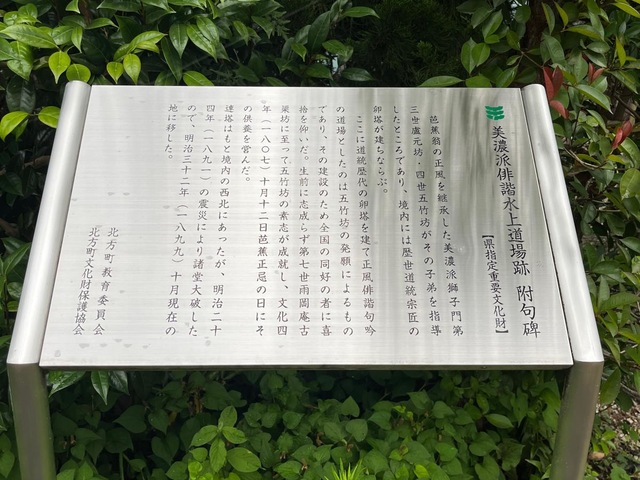 美濃派俳諧水上道場跡 附句碑
【県指定重要文化財】
芭蕉翁の正風を継承した美濃派獅子門第
三世盧元坊・四世五竹坊がその子弟を指導
したところであり、境内には歴世道統宗匠の
卵塔が建ちならぶ。
ここに道統歴代の卵塔を建て正風俳諧句吟
の道場としたのは五竹坊の発願によるもの
であり、その建設のため全国の同好の者に喜
捨を仰いだ。生前に志成らず第七世雨岡庵古
梁坊に至って五竹坊の素志が成就し、文化四
年(一八〇七)十月十二日芭蕉正忌の日にそ
の供養を営んだ。
連塔はもと境内の西北にあったが、明治二十
四年(一八九一)の震災により諸堂大破した
ので、明治三十二年(一八九九)十月現在の
地に移した。
北方町教育委員会
北方町文化財保護協会